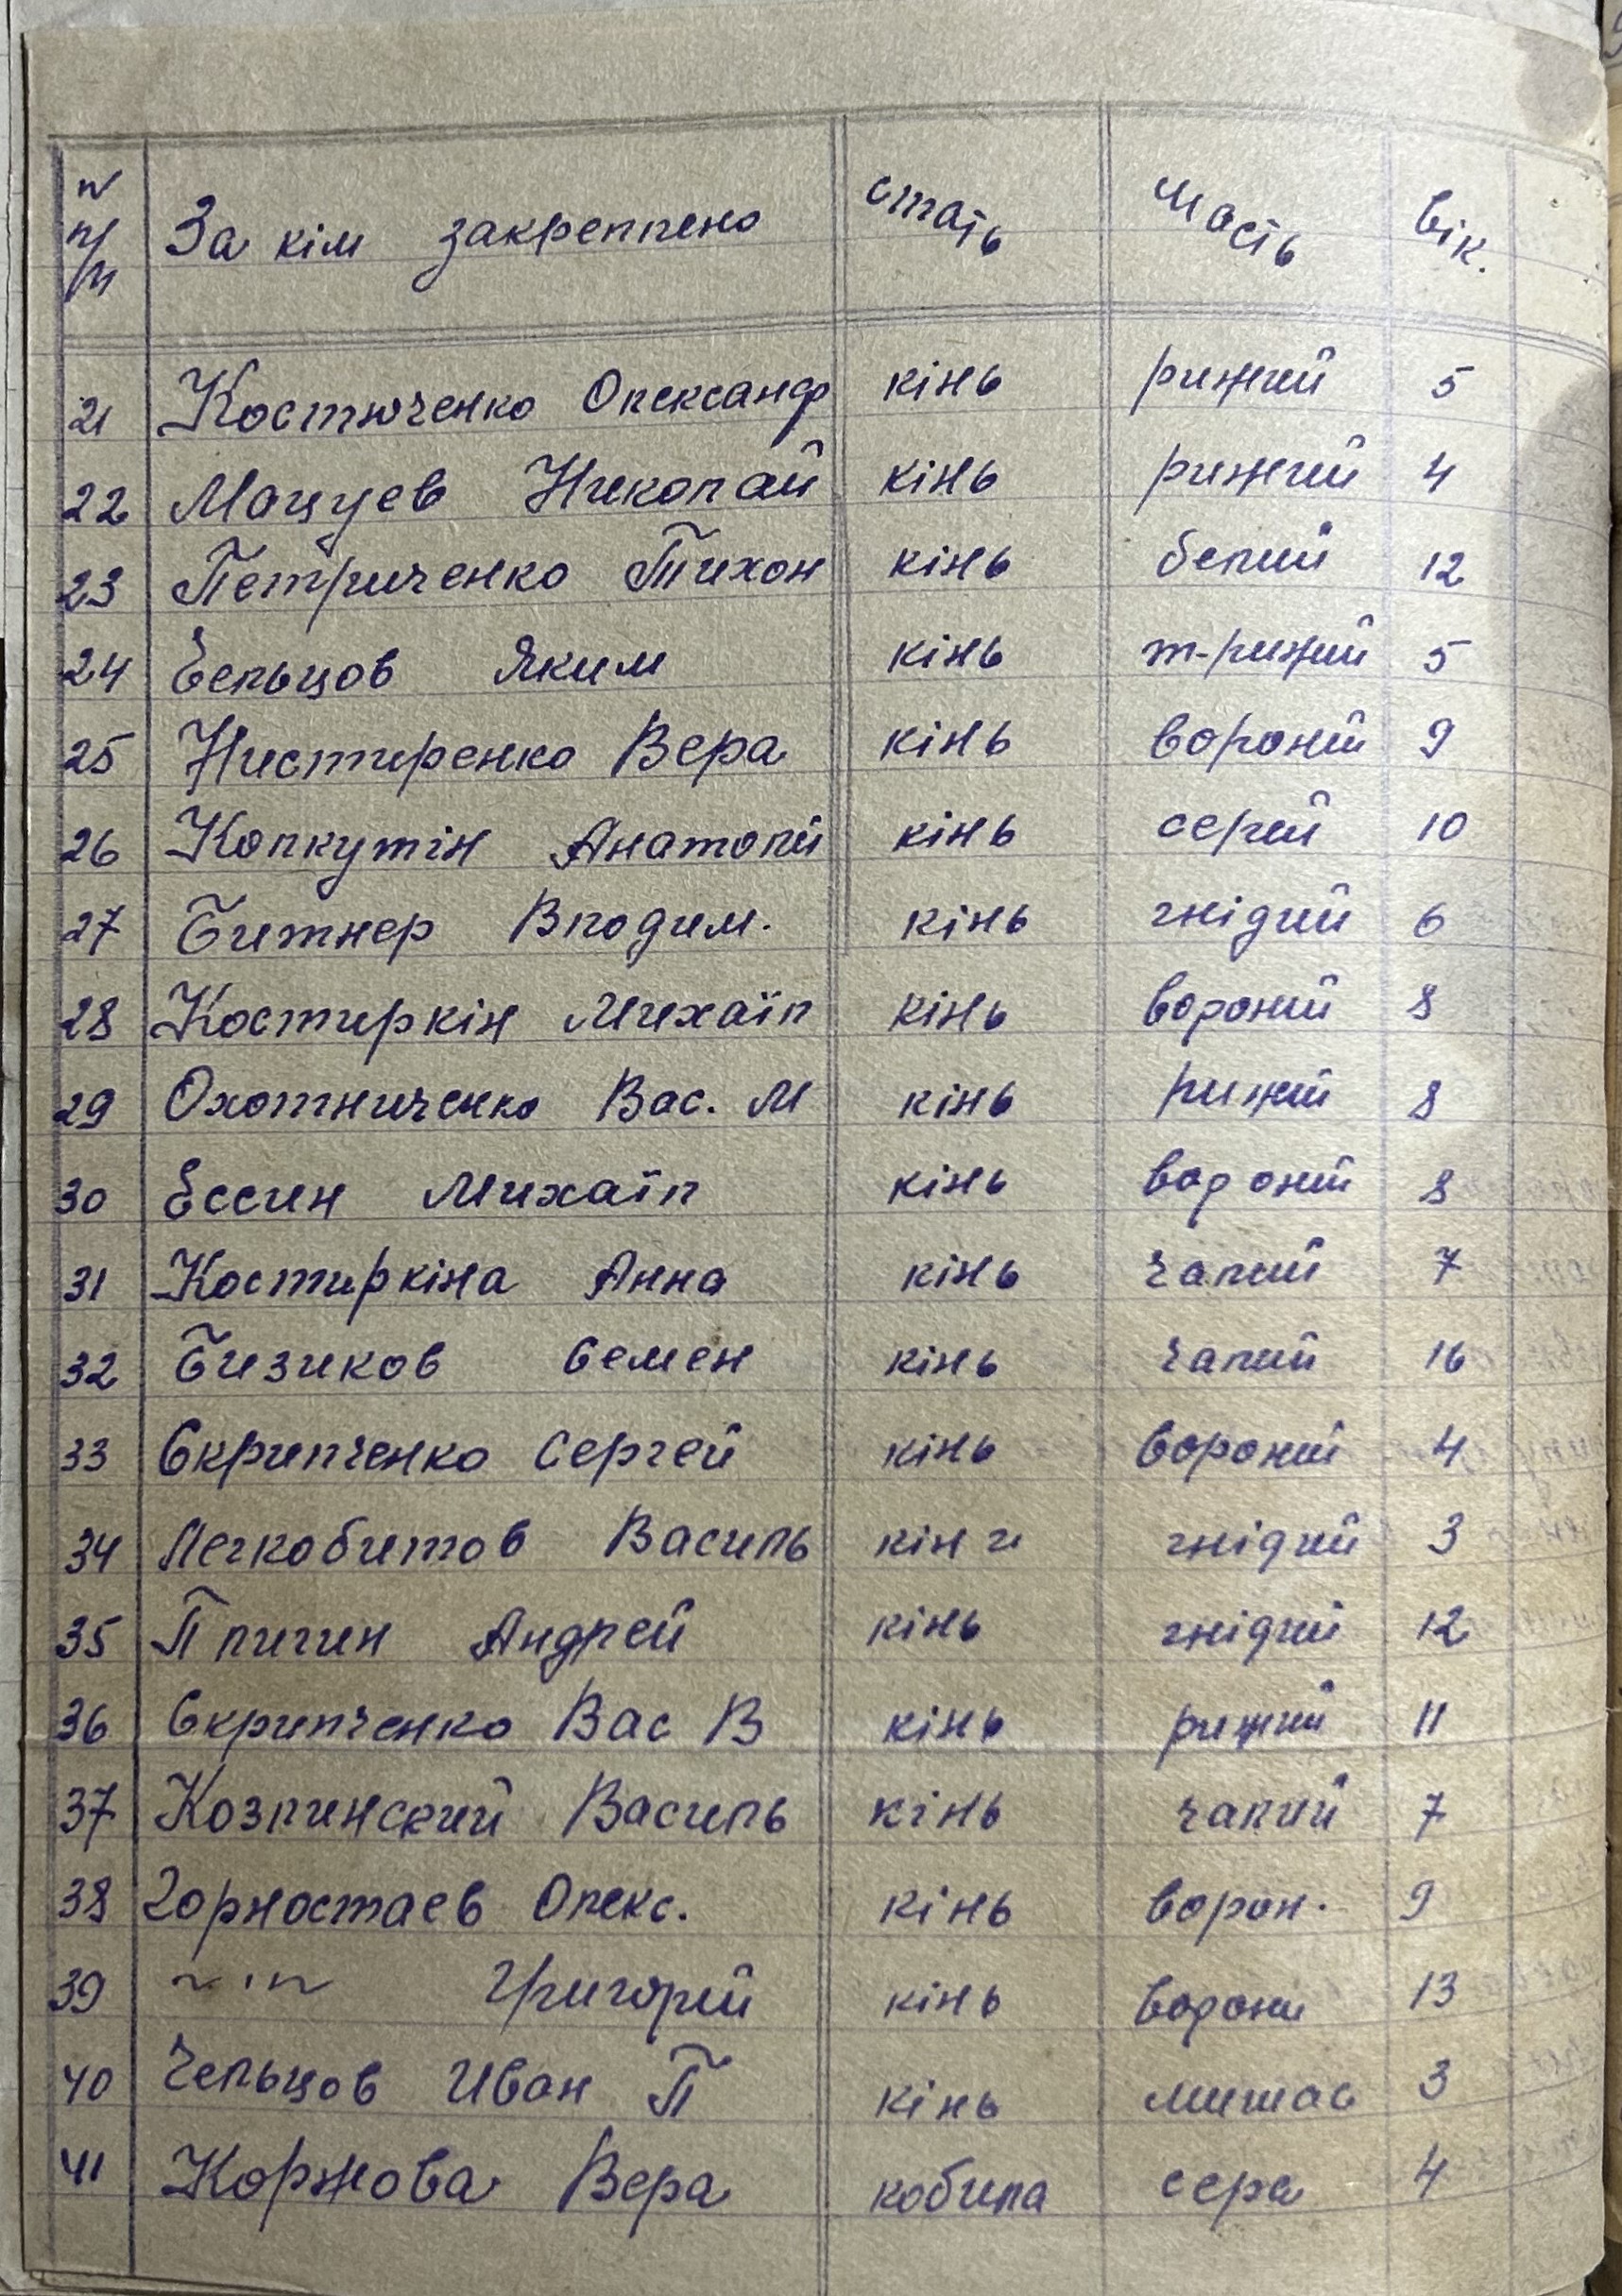 № п/п За кім закреплено стать масть вік.
21 Костюченко Олександ кінь рижий 5
22 Мацуев Николай кінь рижий 4
23 Петриченко Тихон кінь белий 12
24 Чельцов Яким кінь т-рижий 5
25 Нистиренко Вера кінь вороний 9
26 Колкутін Анатолій кінь серий 10
27 Битнер Володим. кінь гнідий 6
28 Костиркін Михаїл кінь вороний 8
29 Охотниченко Вас. М кінь рижий 8
30 Ессин Михаїл кінь вороний 8
31 Костиркіна Анна кінь чалий 7
32 Бизиков Семен кінь чалий 16
33 Скрипченко Сергей кінь вороний 4
34 Легкобитов Василь кінь гнідий 3
35 Плигин Андрей кінь гнідий 12
36 Скрипченко Вас В кінь рижий 11
37 Козлинский Василь кінь чалий 7
38 Горностаев Олекс. кінь ворон. 9
39 –"– Григорій кінь ворони 13
40 Чельцов Иван П кінь мишас 3
41 Коржова Вера кобила сера 4